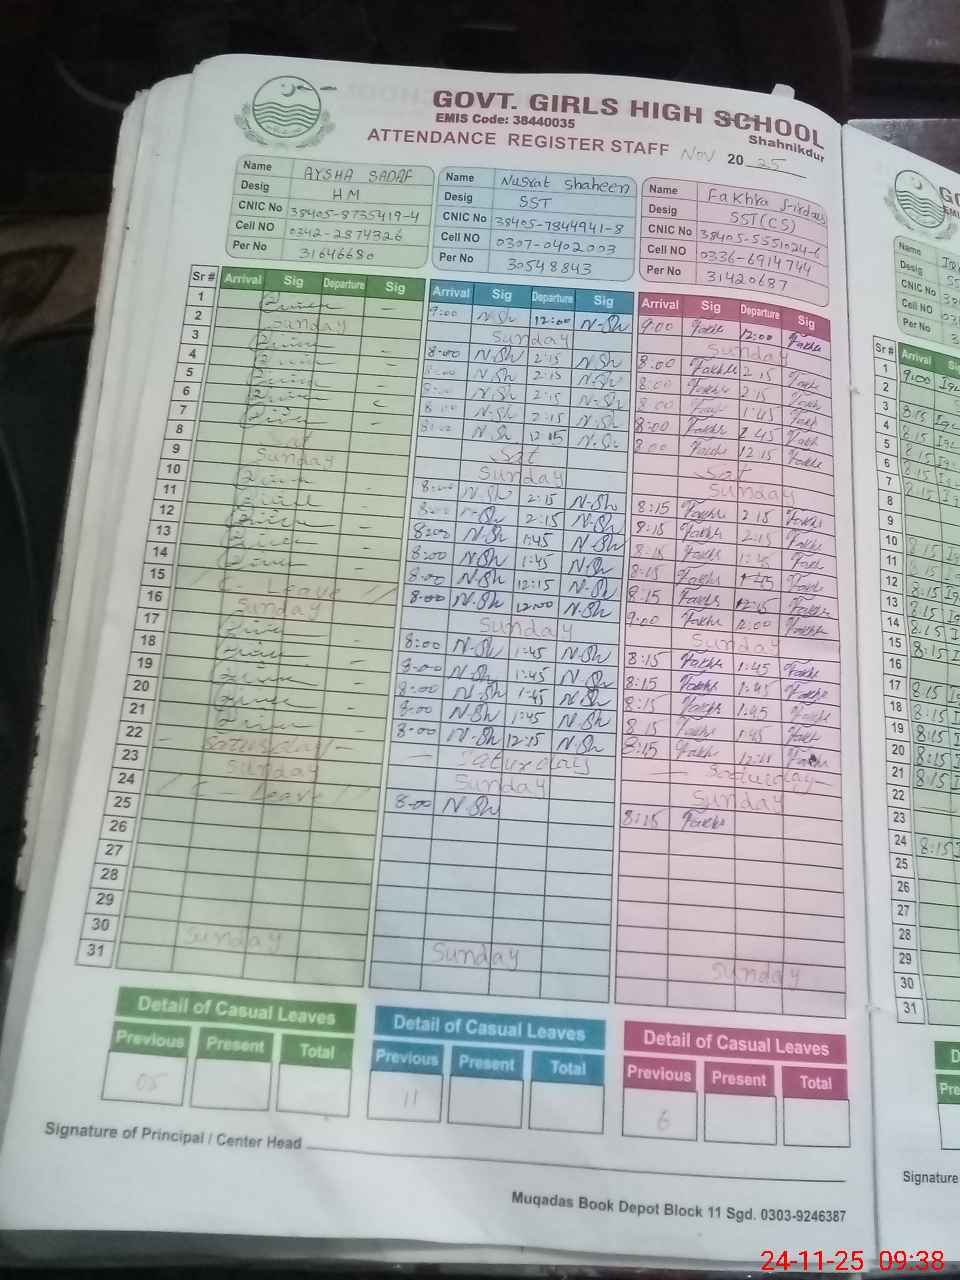 GOVT. GIRLS HIGH SCHOOL
EMIS Code: 38440035
Shahnikdur
ATTENDANCE REGISTER STAFF Nov 2025
Name AYSHA SADAF
Desig HM
CNIC No 38405-8735419-4
Cell NO 0342-2874326
Per No 31646680
Name Nusrat Shaheen
Desig SST
CNIC No 38405-7844941-8
Cell NO 0307-0402003
Per No 30548843
Name Fakhra Firdaus
Desig SST(CS)
CNIC No 38405-5551024-6
Cell NO 0336-6914744
Per No 31420687
Sr # Arrival Sig Departure Sig Arrival Sig Departure Sig Arrival Sig Departure Sig
1 - 9:00 N.Sh 12:00 N-Sh 9:00 Fakhr 12:00 Fakhr
2 Sunday Sunday Sunday
3 - 8:00 N.Sh 2:15 N.Sh 8:00 Fakhr 2:15 Fakhr
4 - 8:00 N.Sh 2:15 N.Sh 8:00 Fakhr 2:15 Fakh
5 - 8:00 N.Sh 2:15 N.Sh 8:00 Fakh 1:45 Fakh
6 8:00 N.Sh 2:15 N.Sh 8:00 Fakhr 1:45 Fakh
7 - 8:00 N.Sh 12:15 N.S. 8:00 Fakhr 12:15 Fakhr
8 Sat Sat Sat
9 Sunday Sunday Sunday
10 - 8:00 N.Sh 2:15 N.Sh 8:15 Fakhr 2:15 Fakhr
11 - 8:00 N-Sh 2:15 N.Sh 8:15 Fakhr 2:15 Fakhr
12 - 8:00 N.Sh 1:45 N.Sh 8:15 Fakhr 1:45 Fakh
13 - 8:00 N.Sh 1:45 N.Sh 8:15 Fakhr 1:45 Fakhr
14 - 8:00 N.Sh 12:15 N.Sh 8:15 Fakhr 12:15 Fakhr
15 C- Leave 8:00 N.Sh 12:00 N.Sh 9:00 Fakhr 12:00 Fakhr
16 Sunday Sunday Sunday
17 - 8:00 N.Sh 1:45 N.Sh 8:15 Fakhr 1:45 Fakhr
18 - 8:00 N.Sh 1:45 N.Sh 8:15 Fakhr 1:45 Fakhr
19 - 8:00 N.Sh 1:45 N.Sh 8:15 Fakhr 1:45 Fakhr
20 - 8:00 N.Sh 1:45 N.Sh 8:15 Fakhr 1:45 Fakh
21 - 8:00 N.Sh 12:15 N.Sh 8:15 Fakhr Fakhr
22 - Saturday - - Saturday - Saturday -
23 Sunday Sunday Sunday
24 C- Leave 8-00 N.Sh 8:15 Fakhr
25
26
27
28
29
30 Sunday Sunday Sunday
31
Detail of Casual Leaves Detail of Casual Leaves Detail of Casual Leaves
Previous Present Total Previous Present Total Previous Present Total
05 11 6
Signature of Principal / Center Head
Muqadas Book Depot Block 11 Sgd. 0303-9246387
Name
Desig
CNIC No
Cell NO
Per No
Sr # Arrival
1 9:00
2
3 8:15
4 8:15
5 8:15
6 8:15
7
8
9
10 8:15
11 8:15
12 8:15
13 8:15
14 8:15
15 8:15
16
17 8:15
18 8:15
19 8:15
20 8:15
21 8:15
22
23
24 8:15
25
26
27
28
29
30
31
Signature
24-11-25 09:38